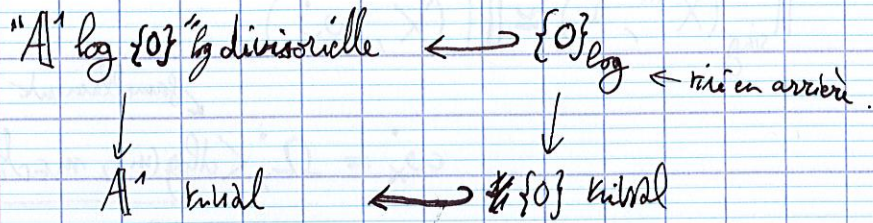 "𝔸¹ log {0}" log divisorielle ← {0}log ← tiré en arrière.
↓ ↓
𝔸¹ trivial ← {0} trivial